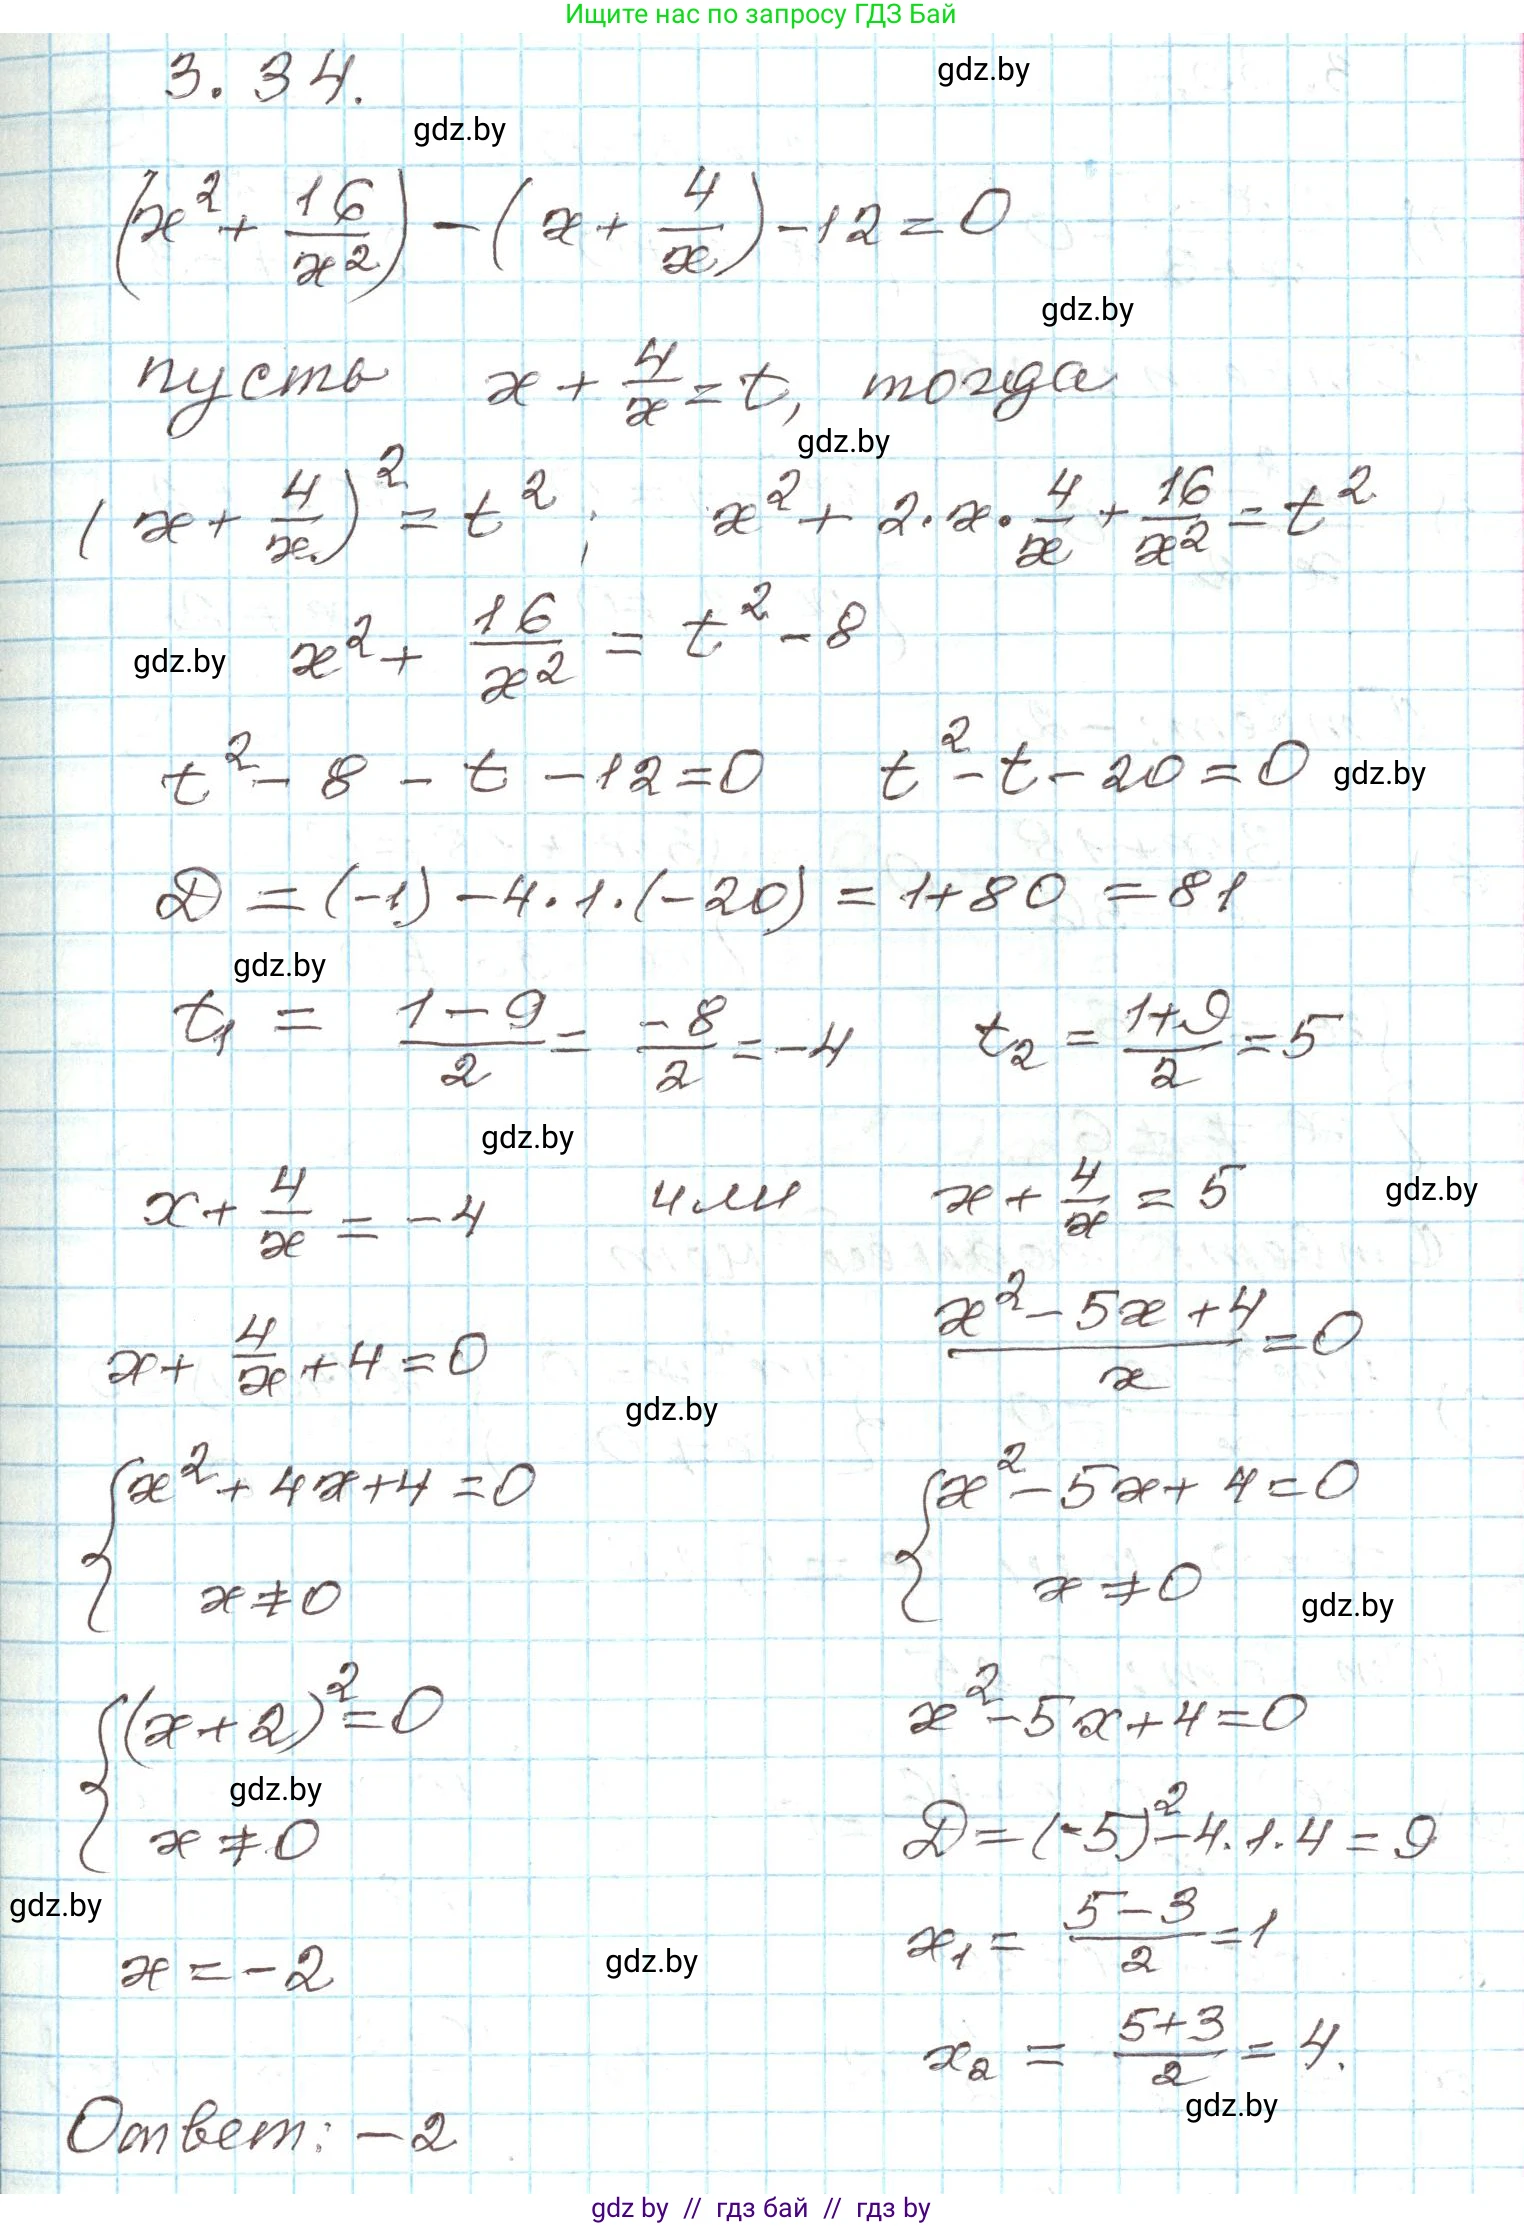 Ищите нас по запросу ГДЗ Бай
3.34.
gdz.by
gdz.by
(x² + 16/x²) - (x + 4/x) - 12 = 0
gdz.by
пусть x + 4/x = t, тогда
gdz.by
(x + 4/x)² = t² ; x² + 2·x·4/x + 16/x² = t²
gdz.by x² + 16/x² = t² - 8
t² - 8 - t - 12 = 0 t² - t - 20 = 0 gdz.by
D = (-1) - 4·1·(-20) = 1 + 80 = 81
gdz.by
t₁ = (1 - 9)/2 = -8/2 = -4 t₂ = (1 + 9)/2 = 5
gdz.by
x + 4/x = -4 или x + 4/x = 5 gdz.by
x + 4/x + 4 = 0 (x² - 5x + 4)/x = 0
gdz.by
{ x² + 4x + 4 = 0 { x² - 5x + 4 = 0
x ≠ 0 x ≠ 0 gdz.by
{ (x + 2)² = 0 x² - 5x + 4 = 0
gdz.by
x ≠ 0 D = (-5)² - 4·1·4 = 9
gdz.by
x = -2 gdz.by x₁ = (5 - 3)/2 = 1
x₂ = (5 + 3)/2 = 4.
gdz.by
Ответ: -2
gdz by // гдз бай // гдз by